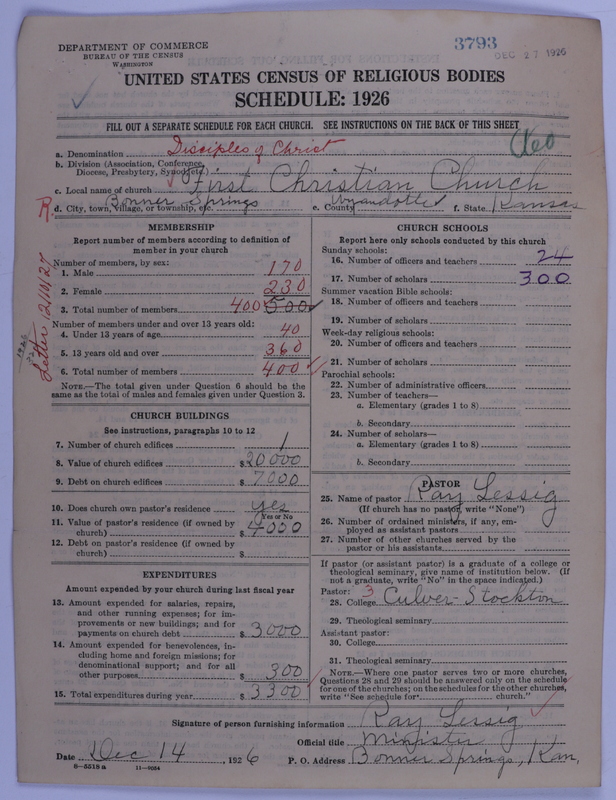 3793
DEC 27 1926
DEPARTMENT OF COMMERCE
BUREAU OF THE CENSUS
WASHINGTON
UNITED STATES CENSUS OF RELIGIOUS BODIES
SCHEDULE: 1926
FILL OUT A SEPARATE SCHEDULE FOR EACH CHURCH. SEE INSTRUCTIONS ON THE BACK OF THIS SHEET
a. Denomination Disciples of Christ
b. Division (Association, Conference, Diocese, Presbytery, Synod, etc.)
c. Local name of church First Christian Church
d. City, town, village, or township, etc. Bonner Springs e. County Wyandotte f. State Kansas
R. Letter 12/10/27
MEMBERSHIP
Report number of members according to definition of member in your church
Number of members, by sex:
1. Male 170
2. Female 230
3. Total number of members 400 500
Number of members under and over 13 years old:
4. Under 13 years of age 40
5. 13 years old and over 360
6. Total number of members 400
NOTE.—The total given under Question 6 should be the same as the total of males and females given under Question 3.
CHURCH BUILDINGS
See instructions, paragraphs 10 to 12
7. Number of church edifices 1
8. Value of church edifices $ 20000
9. Debt on church edifices $ 7000
10. Does church own pastor's residence? yes
(Yes or No)
11. Value of pastor's residence (if owned by church) $ 4000
12. Debt on pastor's residence (if owned by church) $
EXPENDITURES
Amount expended by your church during last fiscal year
13. Amount expended for salaries, repairs, and other running expenses; for improvements or new buildings; and for payments on church debt $ 3000
14. Amount expended for benevolences, including home and foreign missions; for denominational support; and for all other purposes $ 300
15. Total expenditures during year $ 3300
CHURCH SCHOOLS
Report here only schools conducted by this church
Sunday schools:
16. Number of officers and teachers 24
17. Number of scholars 300
Summer vacation Bible schools:
18. Number of officers and teachers
19. Number of scholars
Week-day religious schools:
20. Number of officers and teachers
21. Number of scholars
Parochial schools:
22. Number of administrative officers
23. Number of teachers—
a. Elementary (grades 1 to 8)
b. Secondary
24. Number of scholars—
a. Elementary (grades 1 to 8)
b. Secondary
PASTOR
25. Name of pastor Ray Lessig
(If church has no pastor, write "None")
26. Number of ordained ministers, if any, employed as assistant pastors
27. Number of other churches served by the pastor or his assistants
If pastor (or assistant pastor) is a graduate of a college or theological seminary, give name of institution below. (If not a graduate, write "No" in the space indicated.)
Pastor: 3
28. College Culver-Stockton
29. Theological seminary
Assistant pastor:
30. College
31. Theological seminary
NOTE.—Where one pastor serves two or more churches, Questions 28 and 29 should be answered only on the schedule for one of the churches; on the schedules for the other churches, write "See schedule for church."
Signature of person furnishing information Ray Lessig
Official title Minister
Date Dec 14, 1926 P. O. Address Bonner Springs, Kan,
8-5518 a 11-9064